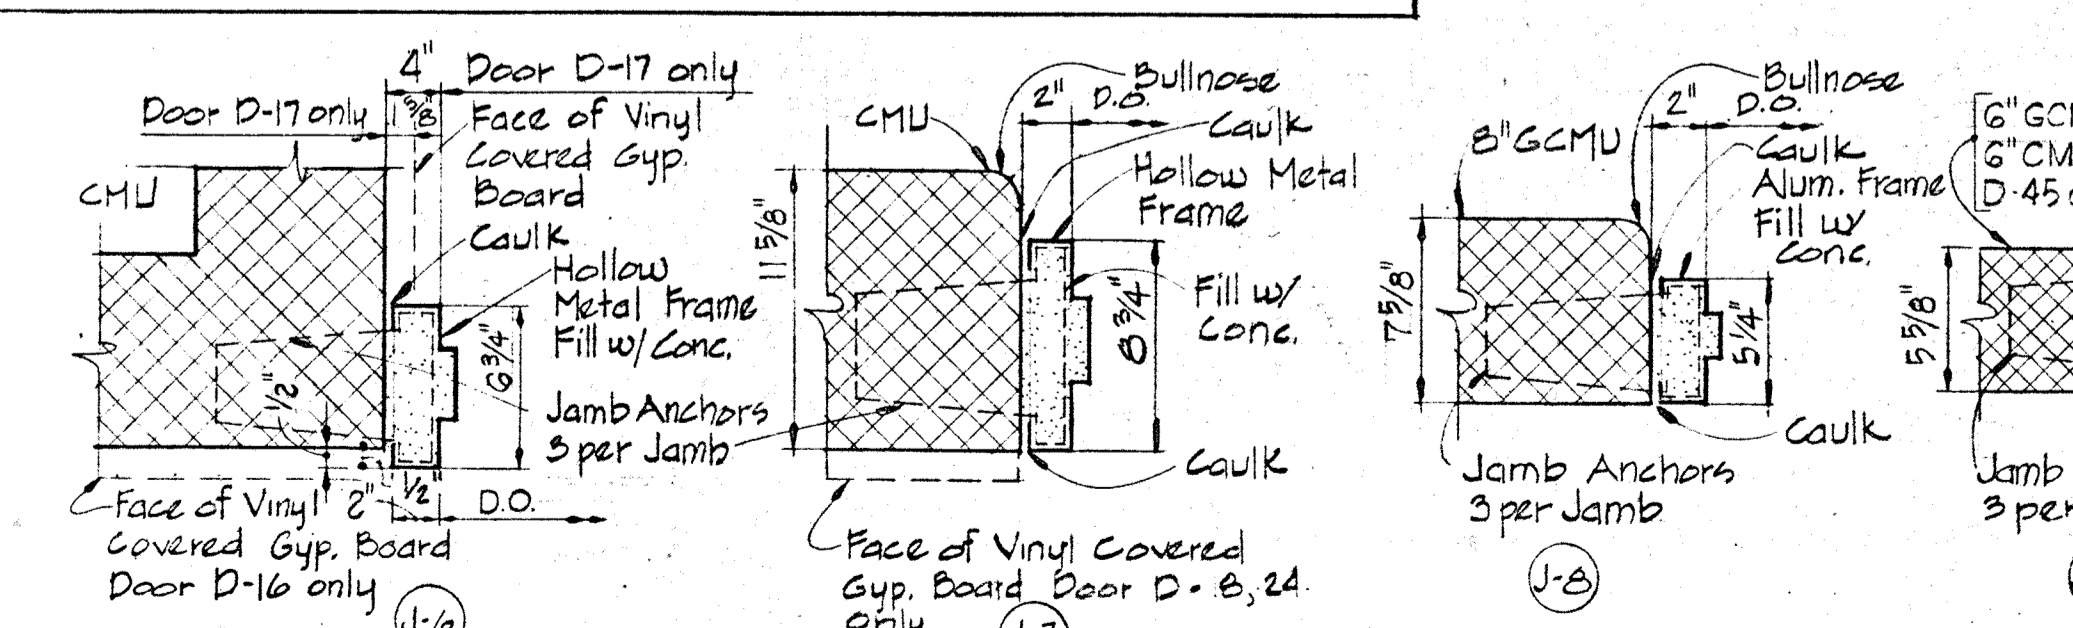 4" Door D-17 only
Door D-17 only
1 5/8"
Face of Vinyl
Covered Gyp.
Board
CMU
Caulk
Hollow
Metal Frame
Fill w/ Conc.
6 3/4"
1/2"
Jamb Anchors
3 per Jamb
1/2"
2"
D.O.
Face of Vinyl
Covered Gyp. Board
Door D-16 only
J-6
Bullnose
2" D.O.
CMU
Caulk
Hollow Metal
Frame
11 5/8"
8 3/4"
Fill w/
Conc.
Caulk
Face of Vinyl Covered
Gyp. Board Door D-8, 24
only
J-7
Bullnose
2" D.O.
8" GCMU
Caulk
Alum. Frame
Fill w/
Conc.
7 5/8"
5 1/4"
Caulk
Jamb Anchors
3 per Jamb
J-8
6" GC
6" CM
D-45
5 5/8"
Jamb
3 per